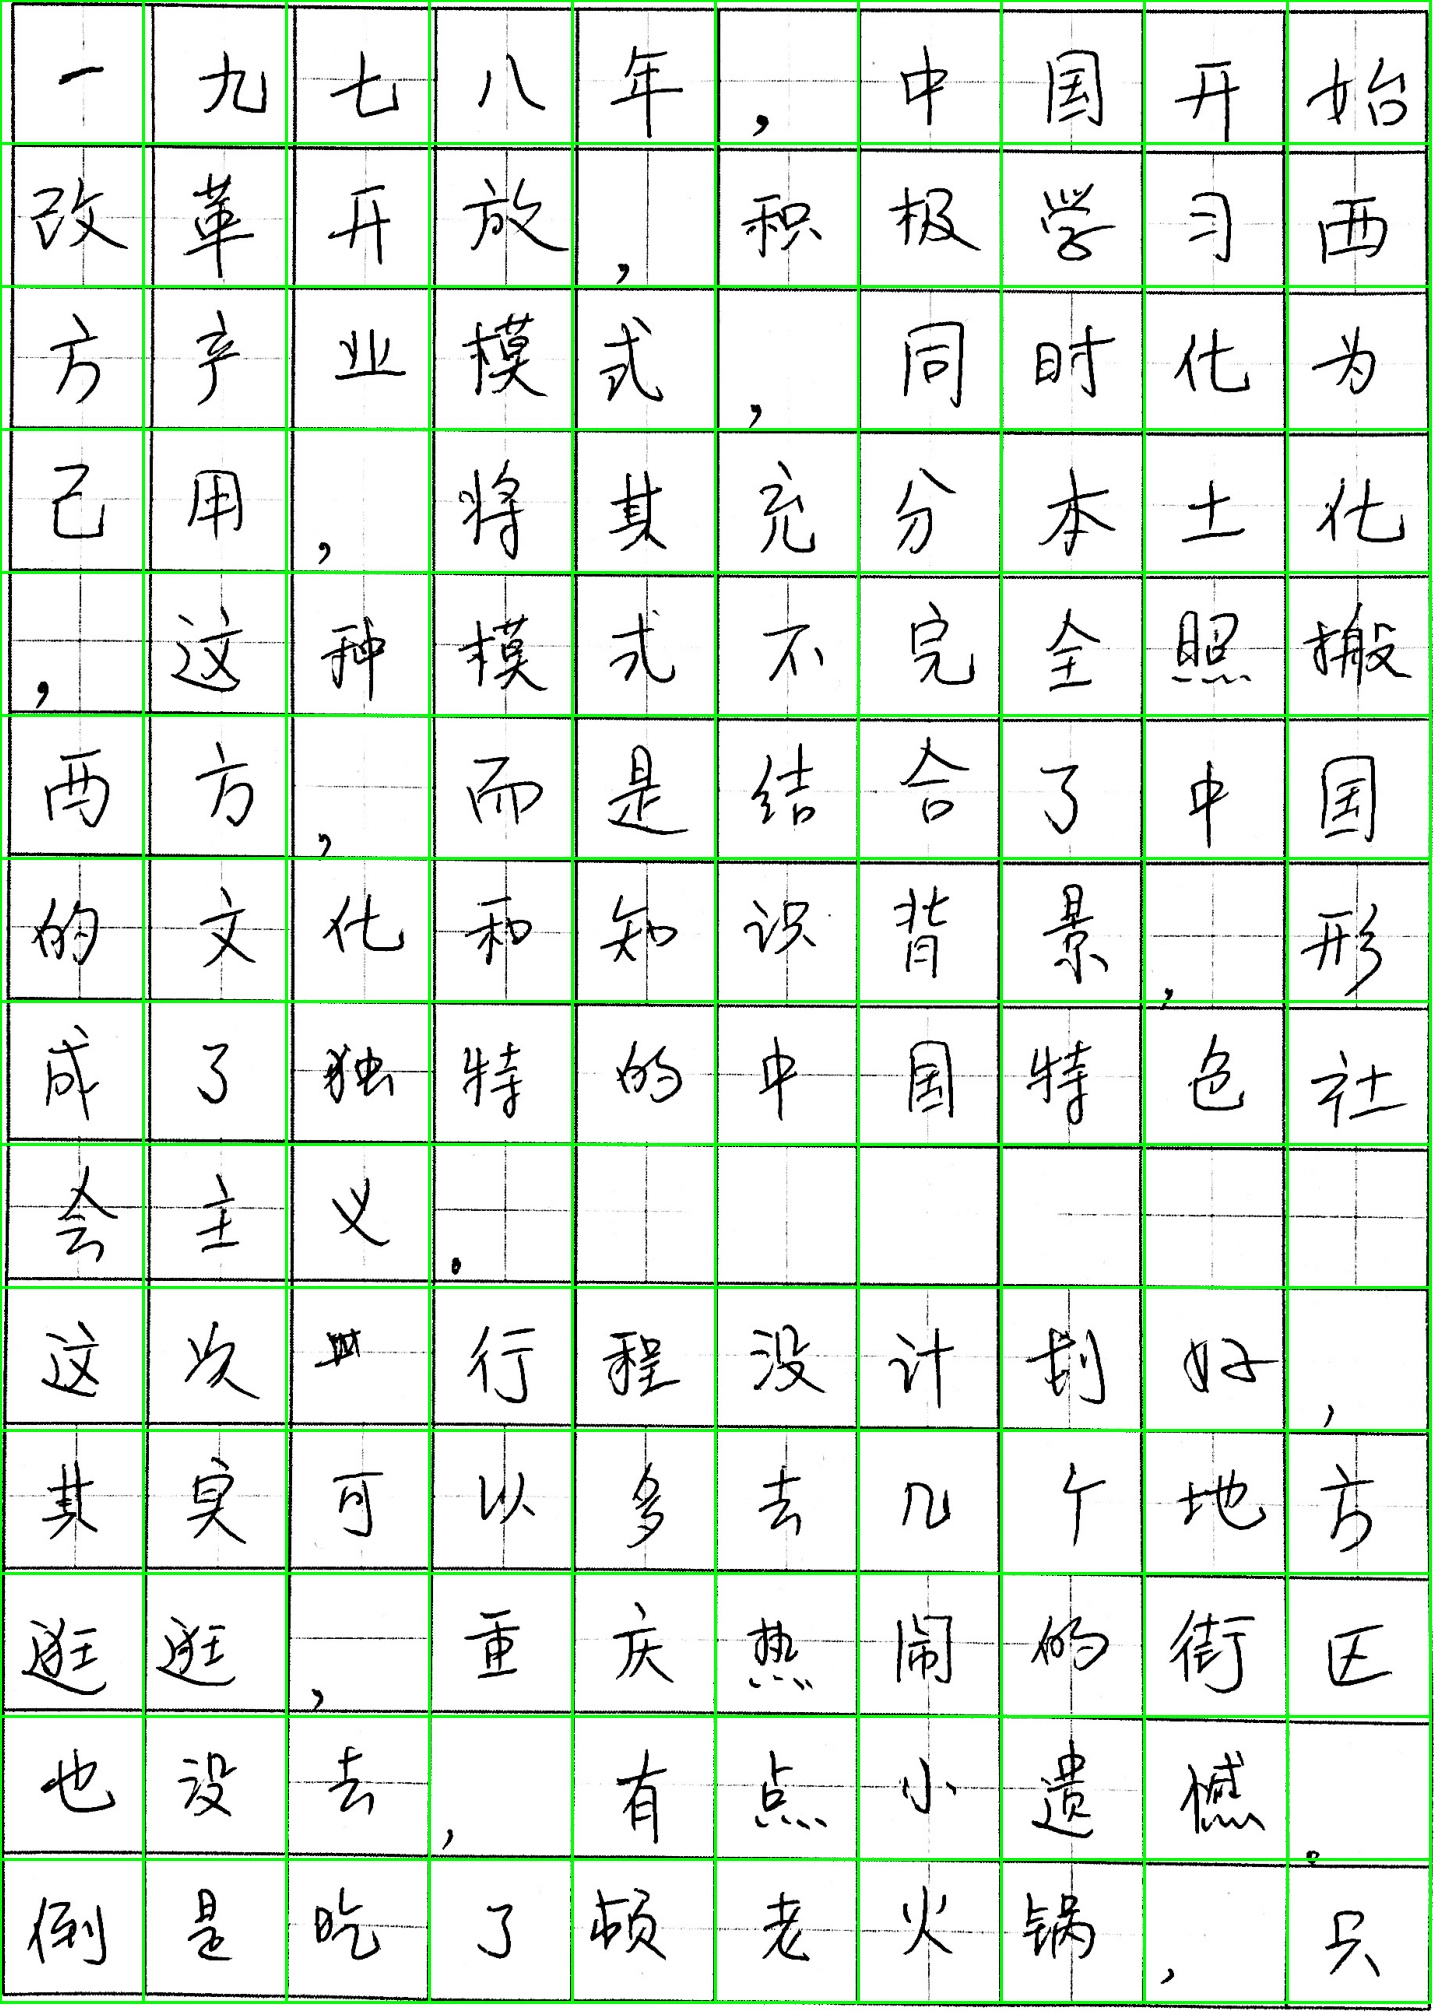 一九七八年，中国开始
改革开放，积极学习西
方产业模式，同时化为
己用，将其充分本土化
，这种模式不完全照搬
西方，而是结合了中国
的文化和知识背景，形
成了独特的中国特色社
会主义。
这次行程没计划好，
其实可以多去几个地方
逛逛，重庆热闹的街区
也没去，有点小遗憾。
倒是吃了顿老火锅，只